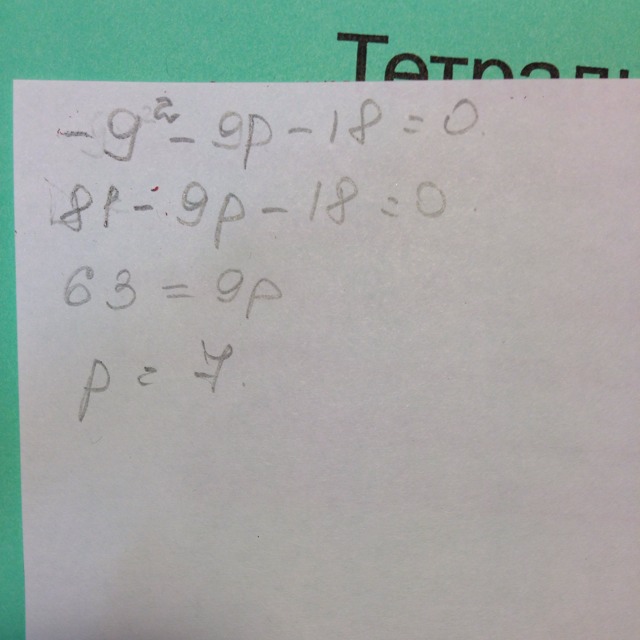 Тетрадь
-9² - 9p - 18 = 0
81 - 9p - 18 = 0
63 = 9p
p = 7